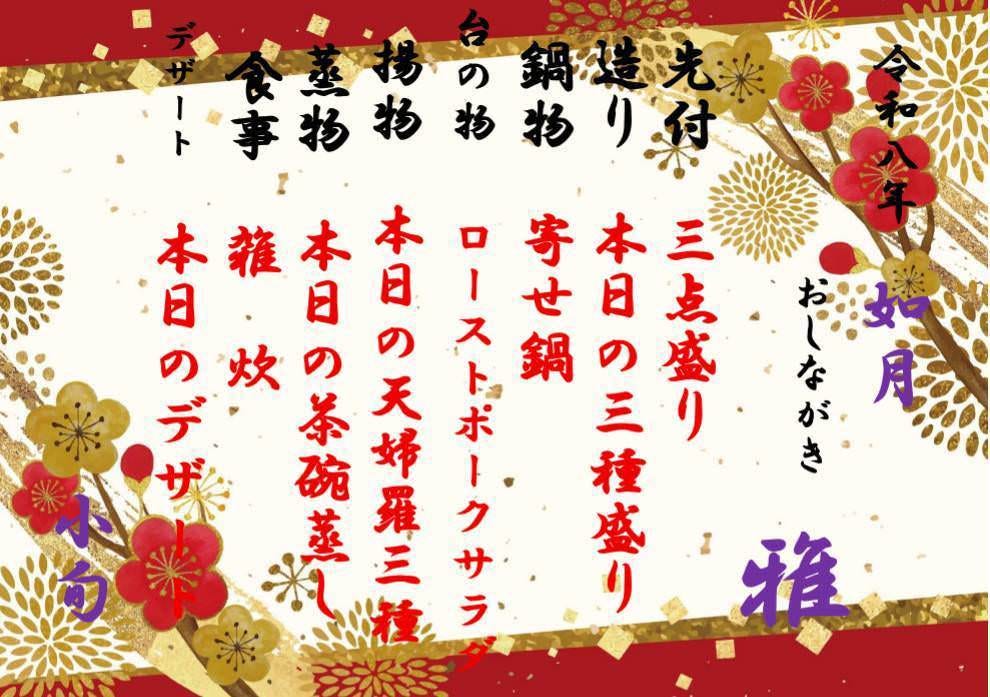 令和八年
如月
おしながき
雅
先付
三点盛り
造り
本日の三種盛り
鍋物
寄せ鍋
台の物
ローストポークサラダ
揚物
本日の天婦羅三種
蒸物
本日の茶碗蒸し
食事
雑炊
デザート
本日のデザート
小旬